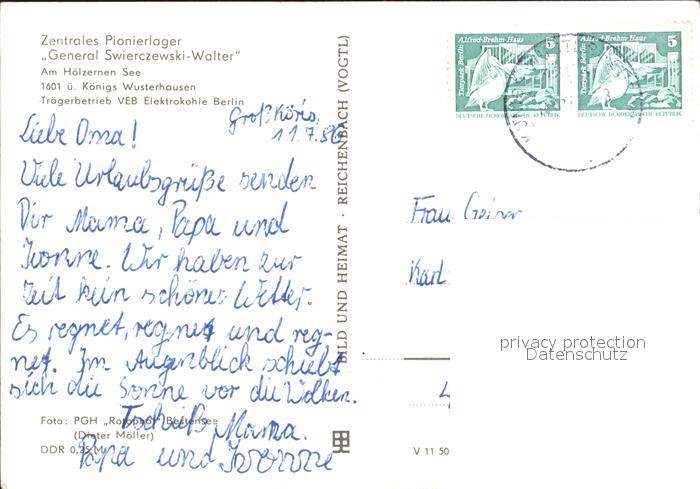 Zentrales Pionierlager
„General Swierczewski-Walter"
Am Hölzernen See
1601 ü. Königs Wusterhausen
Trägerbetrieb VEB Elektrokohle Berlin
Großköris,
11.7.86
Liebe Oma!
Viele Urlaubsgrüße senden
Dir Mama, Papa und
Ivonne. Wir haben zur
Zeit kein schönes Wetter.
Es regnet, regnet und reg-
net. Im Augenblick schiebt
sich die Sonne vor die Wolken.
Tschüß Mama.
Papa und Ivonne
Foto: PGH „Rotophot" Bestensee
(Dieter Möller)
DDR 0,25 M
BILD UND HEIMAT · REICHENBACH (VOGTL)
V 11 50
Tierpark Berlin
Alfred-Brehm-Haus
5
DEUTSCHE DEMOKRATISCHE REPUBLIK
Tierpark Berlin
Alfred-Brehm-Haus
5
DEUTSCHE DEMOKRATISCHE REPUBLIK
Frau
Karl
4
privacy protection
Datenschutz